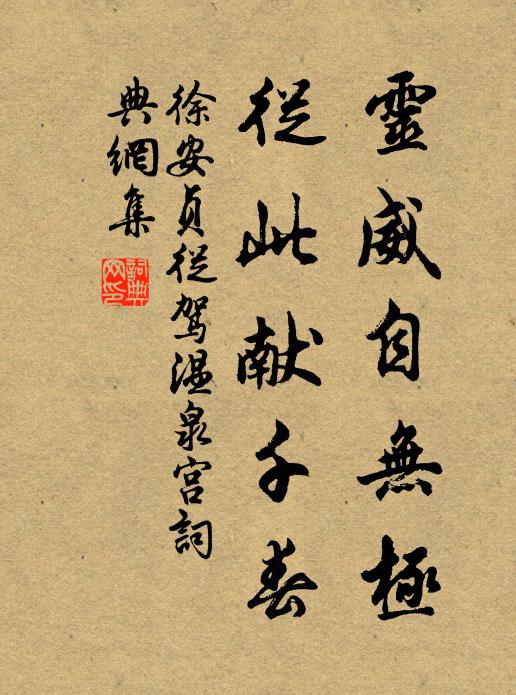 靈威自無極
從此献千春
徐安貞從駕温泉宫詞
典網集
詞典
网印